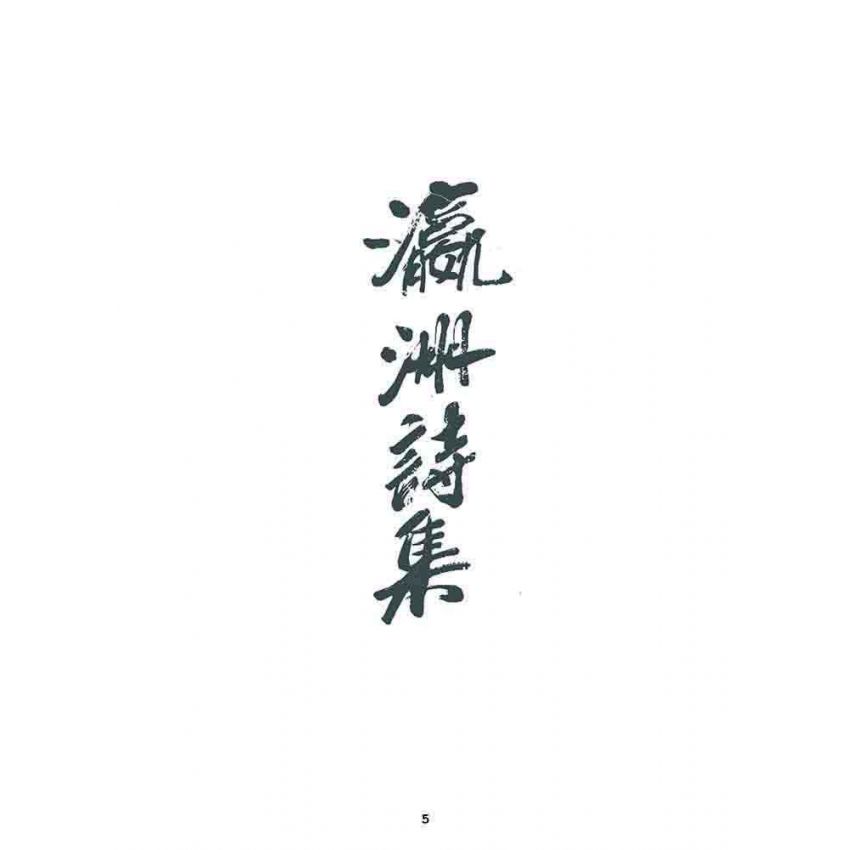 瀛洲詩集
5